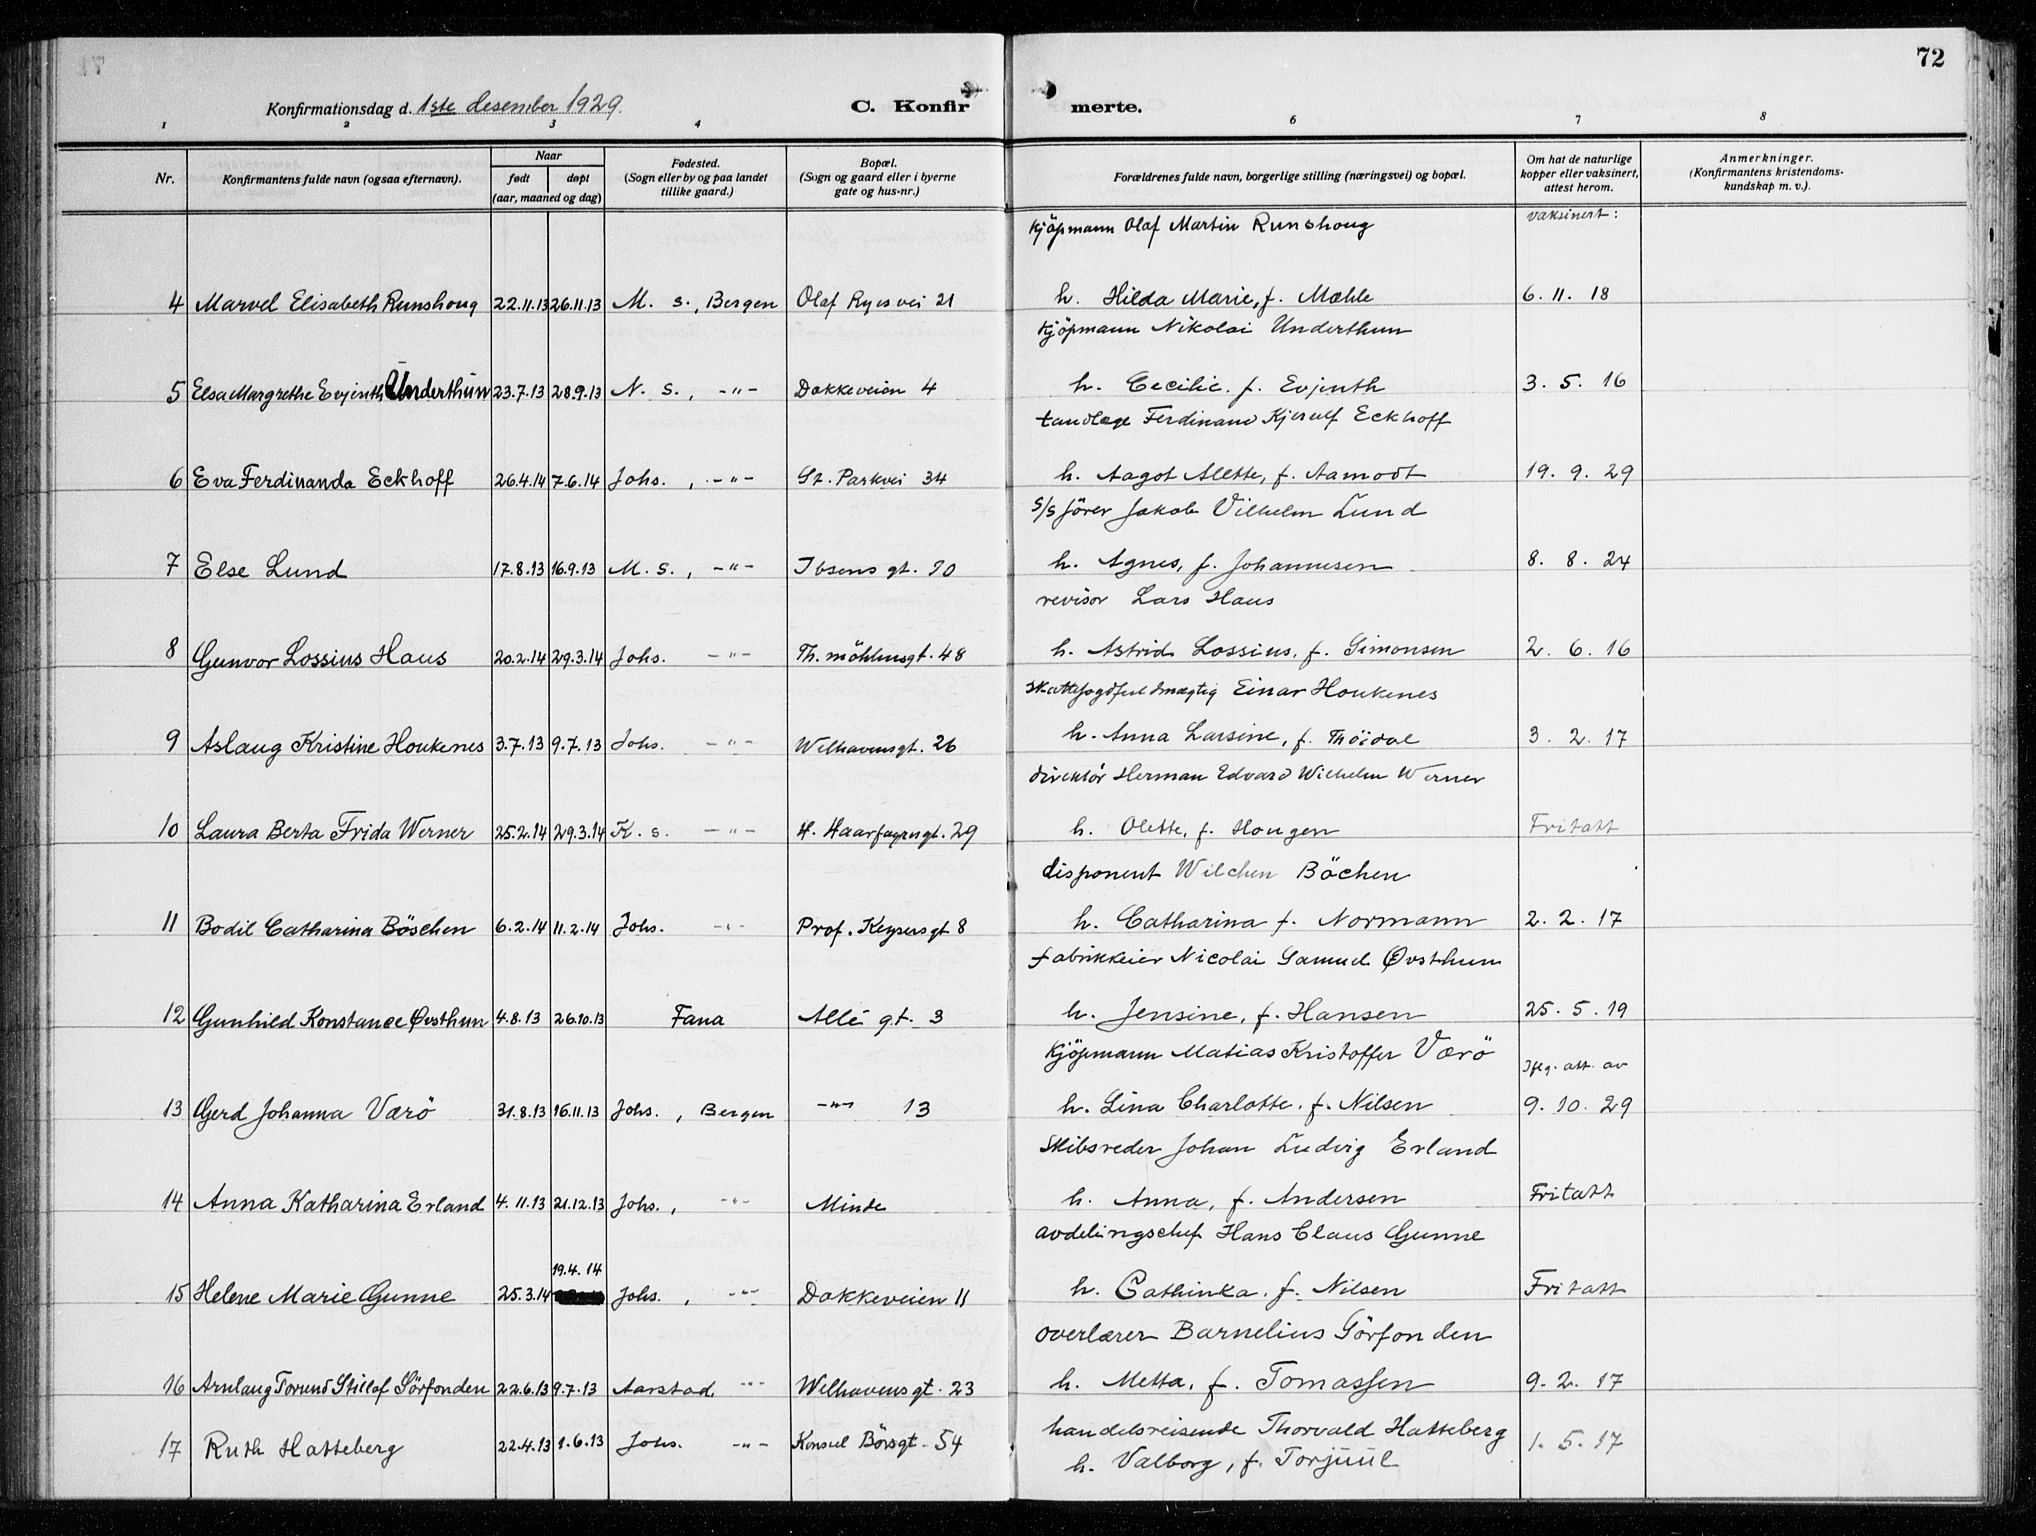 72
Konfirmationsdag d. 1ste desember 1929.
C. Konfirmerte.
1 2 3 4 6 7 8
Nr.
Konfirmantens fulde navn (ogsaa efternavn).
Naar
født døpt
(aar, maaned og dag)
Fødested.
(Sogn eller by og paa landet
tillike gaard.)
Bopæl.
(Sogn og gaard eller i byerne
gate og hus-nr.)
Forældrenes fulde navn, borgerlige stilling (næringsvei) og bopæl.
Om hat de naturlige
kopper eller vaksinert,
attest herom.
Anmerkninger.
(Konfirmantens kristendoms-
kundskap m. v.).
vaksinert:
kjöpmann Olaf Martin Runshoug
4 Marvel Elisabeth Runshoug 22.11.13 26.11.13 M. s., Bergen Olaf Ryes vei 21 h. Hilda Marie, f. Mæhle 6. 11. 18
kjöpmann Nikolai Underthun
5 Elsa Margrethe Evjenth Underthun 23.7.13 28.9.13 N. s., -"- Dokkeveien 4 h. Cecilie. f. Evjenth 3. 5. 16
tandlæge Ferdinand Kjerulf Eckhoff
6 Eva Ferdinanda Eckhoff 26.4.14 7.6.14 Johs., -"- St. Parkvei 34 h. Aagot Alette, f. Aamodt 19. 9. 29
s/s förer Jakob Vilhelm Lund
7 Else Lund 17.8.13 16.9.13 M. s., -"- Ibsens gt. 70 h. Agnes, f. Johannesen 8. 8. 24
revisor Lars Haus
8 Gunvor Lossius Haus 20.2.14 29.3.14 Johs. -"- Th. möhlensgt. 48 h. Astrid Lossius. f. Simonsen 2. 6. 16
skattefogdfuldmægtig Einar Houkenes
9 Aslaug Kristine Houkenes 3.7.13 9.7.13 Johs. -"- Welhavensgt. 26 h. Anna Larsine, f. Thöidal 3. 2. 17
direktör Herman Edvard Wilhelm Werner
10 Laura Berta Frida Werner 25.2.14 29.3.14 K. s. -"- H. Haarfagresgt. 29 h. Olette, f. Hougen Fritatt
disponent Wilchen Böchen
11 Bodil Catharina Böschen 6.2.14 11.2.14 Johs. -"- Prof. Keysersgt 8 h. Catharina f. Normann 2. 2. 17
fabrikkeier Nicolai Samuel Øvsthun
12 Gunhild Konstance Øvsthun 4.8.13 26.10.13 Fana Allé gt. 3 h. Jensine, f. Hansen 25. 5. 19
kjöpmann Matias Kristoffer Værö Iflg. att. av
13 Gerd Johanna Værö 31.8.13 16.11.13 Johs., Bergen -"- 13 h. Lina Charlotte. f. Nilsen 9. 10. 29
Skibsreder Johan Ludvig Erland
14 Anna Katharina Erland 4.11.13 21.12.13 Johs., -"- Minde h. Anna, f. Andersen Fritatt
avdelingschef Hans Claus Gunne
19.4. 14
15 Helene Marie Gunne 25.3.14 Johs., -"- Dokkeveien 11 h. Cathinka. f. Nilsen Fritatt
overlærer Barnelius Sörfonden
16 Arnlaug Torund Stillaf Sörfonden 22.6.13 9.7.13 Aarstad -"- Welhavens gt. 23 h. Metta, f. Tomassen 9. 2. 17
handelsreisende Thorvald Hatteberg
17 Ruth Hatteberg 22.4.13 1.6.13 Johs. -"- Konsul Börsgt. 54 h. Valborg, f. Torjuul 1. 5. 17